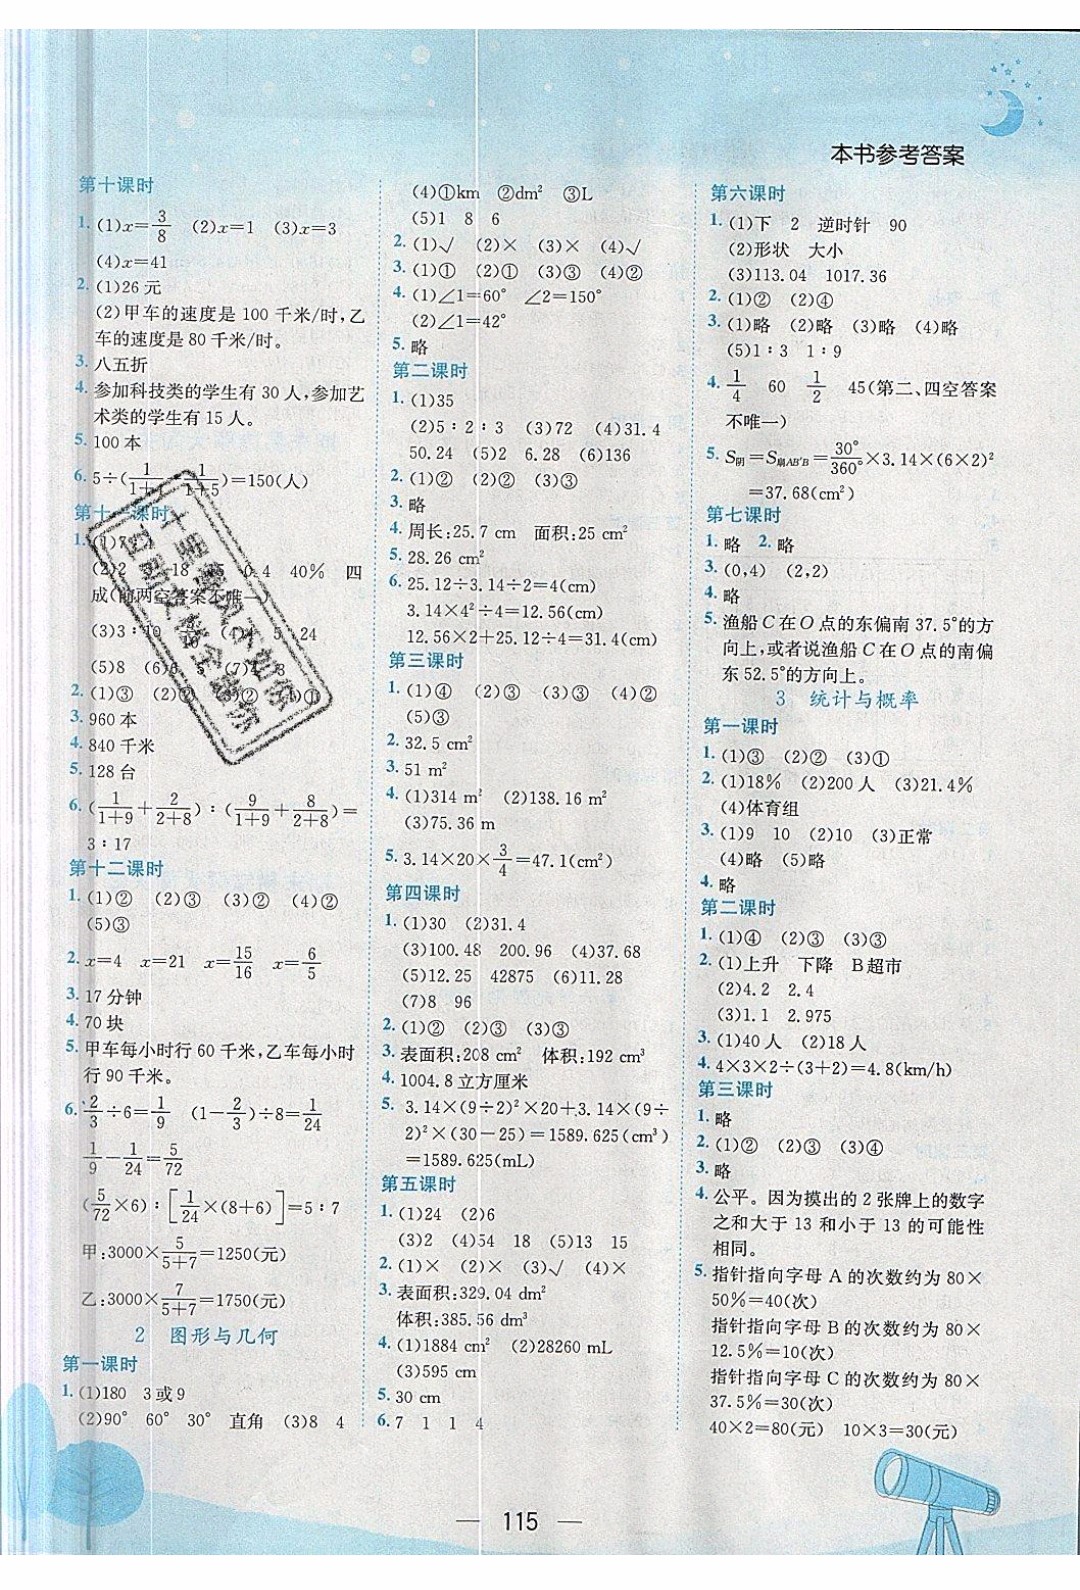 本书参考答案
第十课时
1. (1)x=3/8 (2)x=1 (3)x=3
(4)x=41
2. (1)26元
(2)甲车的速度是100千米/时,乙
车的速度是80千米/时。
3. 八五折
4. 参加科技类的学生有30人,参加艺
术类的学生有15人。
5. 100本
6. 5÷( 1/ - 1/1+5)=150(人)
第十一课时
1. (1)72
(2)2 18 0.4 40% 四
成(前两空答案不唯一)
(3)3∶10 (4) 5 24
(5)8 (6) (7) 8
2. (1)③ (2) ② (4)①
3. 960本
4. 840千米
5. 128台
6. (1/1+9+2/2+8)∶(9/1+9+8/2+8)=
3∶17
第十二课时
1. (1)② (2)③ (3)② (4)②
(5)③
2. x=4 x=21 x=15/16 x=6/5
3. 17分钟
4. 70块
5. 甲车每小时行60千米,乙车每小时
行90千米。
6. 2/3÷6=1/9 (1-2/3)÷8=1/24
1/9-1/24=5/72
(5/72×6)∶[1/24×(8+6)]=5∶7
甲:3000×5/5+7=1250(元)
乙:3000×7/5+7=1750(元)
2 图形与几何
第一课时
1. (1)180 3或9
(2)90° 60° 30° 直角 (3)8 4
(4)①km ②dm² ③L
(5)1 8 6
2. (1)√ (2)× (3)× (4)√
3. (1)① (2)① (3)③ (4)②
4. (1)∠1=60° ∠2=150°
(2)∠1=42°
5. 略
第二课时
1. (1)35
(2)5∶2∶3 (3)72 (4)31.4
50.24 (5)2 6.28 (6)136
2. (1)② (2)② (3)③
3. 略
4. 周长:25.7 cm 面积:25 cm²
5. 28.26 cm²
6. 25.12÷3.14÷2=4(cm)
3.14×4²÷4=12.56(cm)
12.56×2+25.12÷4=31.4(cm)
第三课时
1. (1)④ (2)③ (3)③ (4)②
(5)③
2. 32.5 cm²
3. 51 m²
4. (1)314 m² (2)138.16 m²
(3)75.36 m
5. 3.14×20×3/4=47.1(cm²)
第四课时
1. (1)30 (2)31.4
(3)100.48 200.96 (4)37.68
(5)12.25 42875 (6)11.28
(7)8 96
2. (1)② (2)③ (3)③
3. 表面积:208 cm² 体积:192 cm³
4. 1004.8立方厘米
5. 3.14×(9÷2)²×20+3.14×(9÷
2)²×(30-25)=1589.625(cm³)
=1589.625(mL)
第五课时
1. (1)24 (2)6
(3)2 (4)54 18 (5)13 15
2. (1)× (2)× (3)√ (4)×
3. 表面积:329.04 dm²
体积:385.56 dm³
4. (1)1884 cm² (2)28260 mL
(3)595 cm
5. 30 cm
6. 7 1 1 4
第六课时
1. (1)下 2 逆时针 90
(2)形状 大小
(3)113.04 1017.36
2. (1)② (2)④
3. (1)略 (2)略 (3)略 (4)略
(5)1∶3 1∶9
4. 1/4 60 1/2 45(第二、四空答案
不唯一)
5. S阴=S扇AB′B=30°/360°×3.14×(6×2)²
=37.68(cm²)
第七课时
1. 略 2. 略
3. (0,4) (2,2)
4. 略
5. 渔船C在O点的东偏南37.5°的方
向上,或者说渔船C在O点的南偏
东52.5°的方向上。
3 统计与概率
第一课时
1. (1)③ (2)② (3)①
2. (1)18% (2)200人 (3)21.4%
(4)体育组
3. (1)9 10 (2)10 (3)正常
(4)略 (5)略
4. 略
第二课时
1. (1)④ (2)③ (3)③
2. (1)上升 下降 B超市
(2)4.2 2.4
(3)1.1 2.975
3. (1)40人 (2)18人
4. 4×3×2÷(3+2)=4.8(km/h)
第三课时
1. 略
2. (1)② (2)③ (3)④
3. 略
4. 公平。因为摸出的2张牌上的数字
之和大于13和小于13的可能性
相同。
5. 指针指向字母A的次数约为80×
50%=40(次)
指针指向字母B的次数约为80×
12.5%=10(次)
指针指向字母C的次数约为80×
37.5%=30(次)
40×2=80(元) 10×3=30(元)
— 115 —